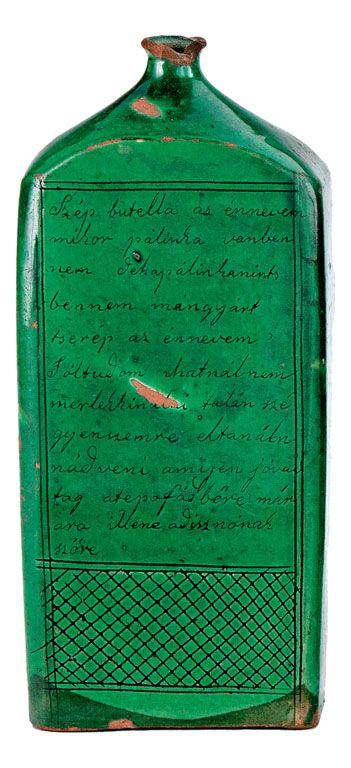 Szép butella az énnevem
mikor pálinka vanben
nem dehapálinkanints
bennem mángyárt
tserép az énnevem
Föltudom hatnálnem
mertekkinálni talán szé
gyensemre eltanáln
nádveni amijén jóvol
tag atepofád bőre már
ara illene adisznónak
szőre